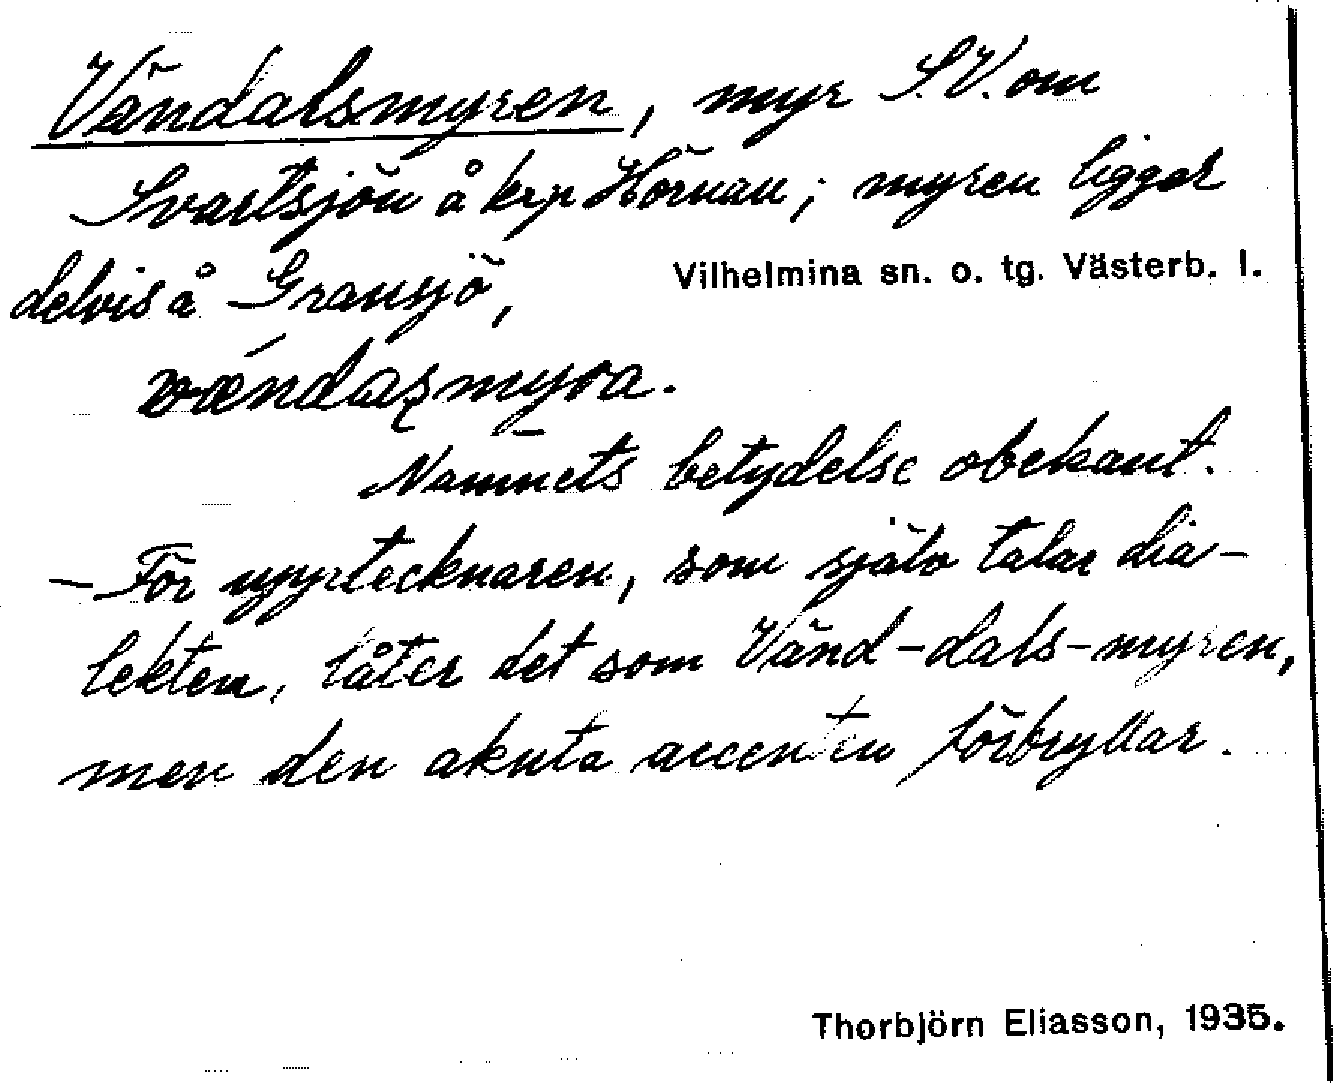 Vändalsmyren, myr S.V. om
Svartsjön å krp Hörnan; myren ligger
delvis å Gransjö,
Vilhelmina sn. o. tg. Västerb. l.
Namnets betydelse obekant.
– För upptecknaren, som själv talar dia-
lekten, låter det som Vänd-dals-myren,
men den akuta accenten förbryllar.
Thorbjörn Eliasson, 1935.